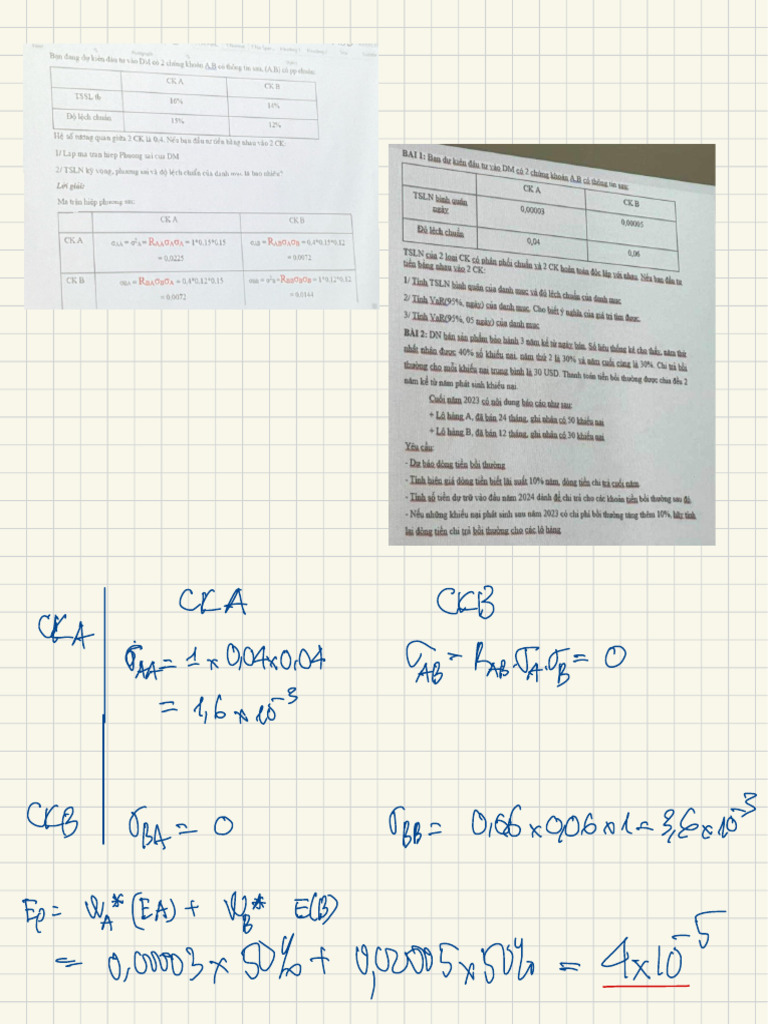 Bạn đang dự kiến đầu tư vào DM có 2 chứng khoán A,B có thông tin sau, (A,B) có pp chuẩn:
CK A CK B
TSSL tb 16% 14%
Độ lệch chuẩn 15% 12%
Hệ số tương quan giữa 2 CK là 0,4. Nếu bạn đầu tư tiền bằng nhau vào 2 CK:
1/ Lập ma trận hiệp Phương sai của DM
2/ TSLN kỳ vọng, phương sai và độ lệch chuẩn của danh mục là bao nhiêu?
Lời giải:
Ma trận hiệp phương sai:
CK A CK B
CK A σAA = σ²A = RAAσAσA = 1*0.15*0.15 σAB = RABσAσB = 0,4*0.15*0.12
= 0.0225 = 0.0072
CK B σBA = RBAσBσA = 0,4*0.12*0.15 σBB = σ²B = RBBσBσB = 1*0.12*0.12
= 0.0072 = 0.0144
BÀI 1: Bạn dự kiến đầu tư vào DM có 2 chứng khoán A,B có thông tin sau:
CK A CK B
TSLN bình quân
ngày 0,00003 0,00005
Độ lệch chuẩn 0,04 0,06
TSLN của 2 loại CK có phân phối chuẩn và 2 CK hoàn toàn độc lập với nhau. Nếu bạn đầu tư
tiền bằng nhau vào 2 CK:
1/ Tính TSLN bình quân của danh mục và độ lệch chuẩn của danh mục
2/ Tính VaR(95%, ngày) của danh mục. Cho biết ý nghĩa của giá trị tìm được.
3/ Tính VaR(95%, 05 ngày) của danh mục
BÀI 2: DN bán sản phẩm bảo hành 3 năm kể từ ngày bán. Số liệu thống kê cho thấy, năm thứ
nhất nhận được 40% số khiếu nại, năm thứ 2 là 30% và năm cuối cùng là 30%. Chi trả bồi
thường cho mỗi khiếu nại trung bình là 30 USD. Thanh toán tiền bồi thường được chia đều 2
năm kể từ năm phát sinh khiếu nại.
Cuối năm 2023 có nội dung báo cáo như sau:
+ Lô hàng A, đã bán 24 tháng, ghi nhận có 50 khiếu nại
+ Lô hàng B, đã bán 12 tháng, ghi nhận có 30 khiếu nại
Yêu cầu:
- Dự báo dòng tiền bồi thường
- Tính hiện giá dòng tiền biết lãi suất 10% năm, dòng tiền chi trả cuối năm
- Tính số tiền dự trữ vào đầu năm 2024 dành để chi trả cho các khoản tiền bồi thường sau đó
- Nếu những khiếu nại phát sinh sau năm 2023 có chi phí bồi thường tăng thêm 10%, hãy tính
lại dòng tiền chi trả bồi thường cho các lô hàng
CKA CKB
CKA σAA = 1 × 0,04×0,04 σAB = RAB.σA.σB = 0
= 1,6 × 10⁻³
CKB σBA = 0 σBB = 0,06×0,06×1 = 3,6×10⁻³
Ep = WA*(EA) + WB* E(B)
= 0,00003 × 50% + 0,00005×50% = 4×10⁻⁵